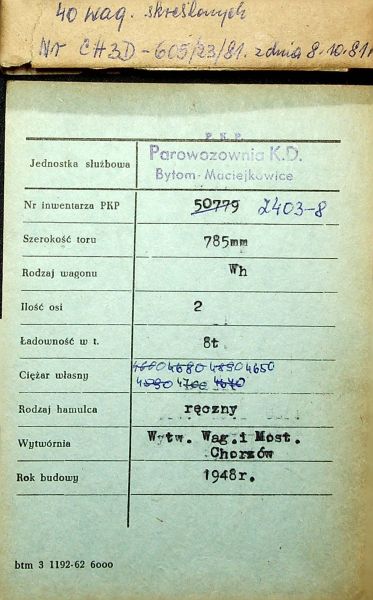 40 wag. skreślonych
Nr CH3D-605/23/81. z dnia 8.10.81r
P.K.P.
Jednostka służbowa Parowozownia K.D.
Bytom-Maciejkowice
Nr inwentarza PKP 50779 2403-8
Szerokość toru 785mm
Rodzaj wagonu Wh
Ilość osi 2
Ładowność w t. 8t
Ciężar własny 4680 4890 4650
4700 4640
Rodzaj hamulca ręczny
Wytwórnia Wytw. Wag.i Most.
Chorzów
Rok budowy 1948r.
btm 3 1192-62 6000